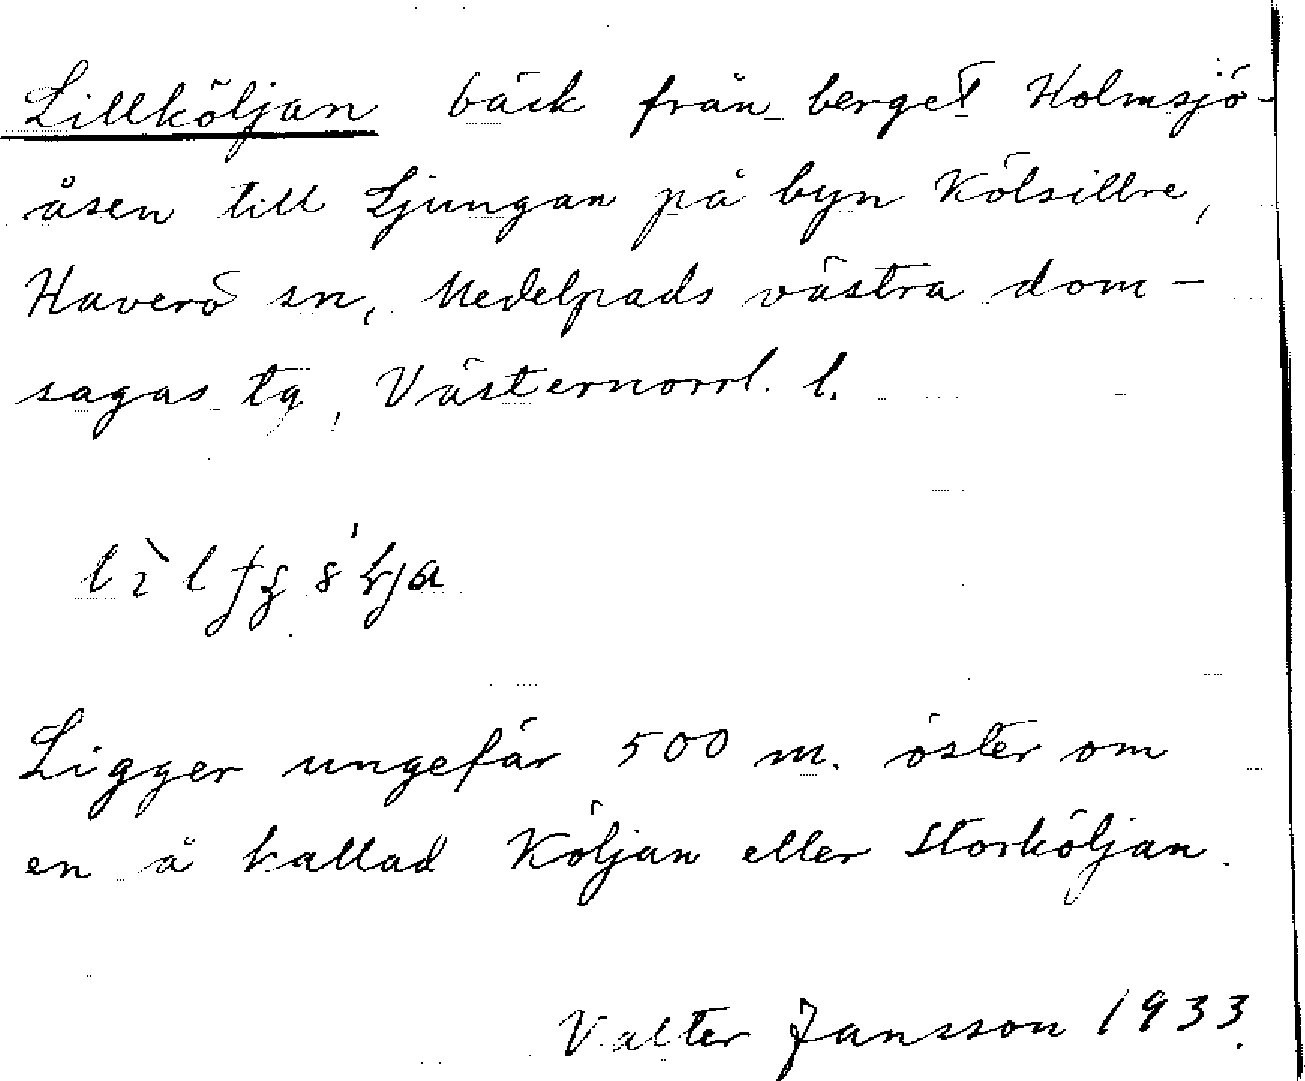 Lillköljan bäck från berget Holmsjö-
åsen till Ljungan på byn Kölsillre,
Haverö sn, Medelpads västra dom-
sagas tg, Västernorrl. l.
Ligger ungefär 500 m. öster om
en å kallad Köljan eller Storköljan.
Valter Jansson 1933.